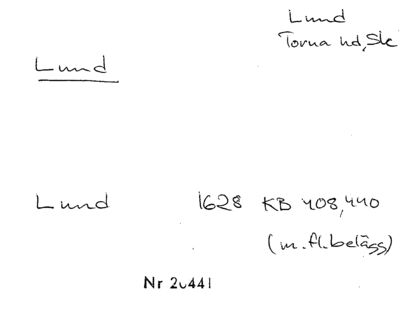 Lund
Torna hd, Sk
Lund
Lund 1628 KB 408,440
(m.fl.belägg)
Nr 20441